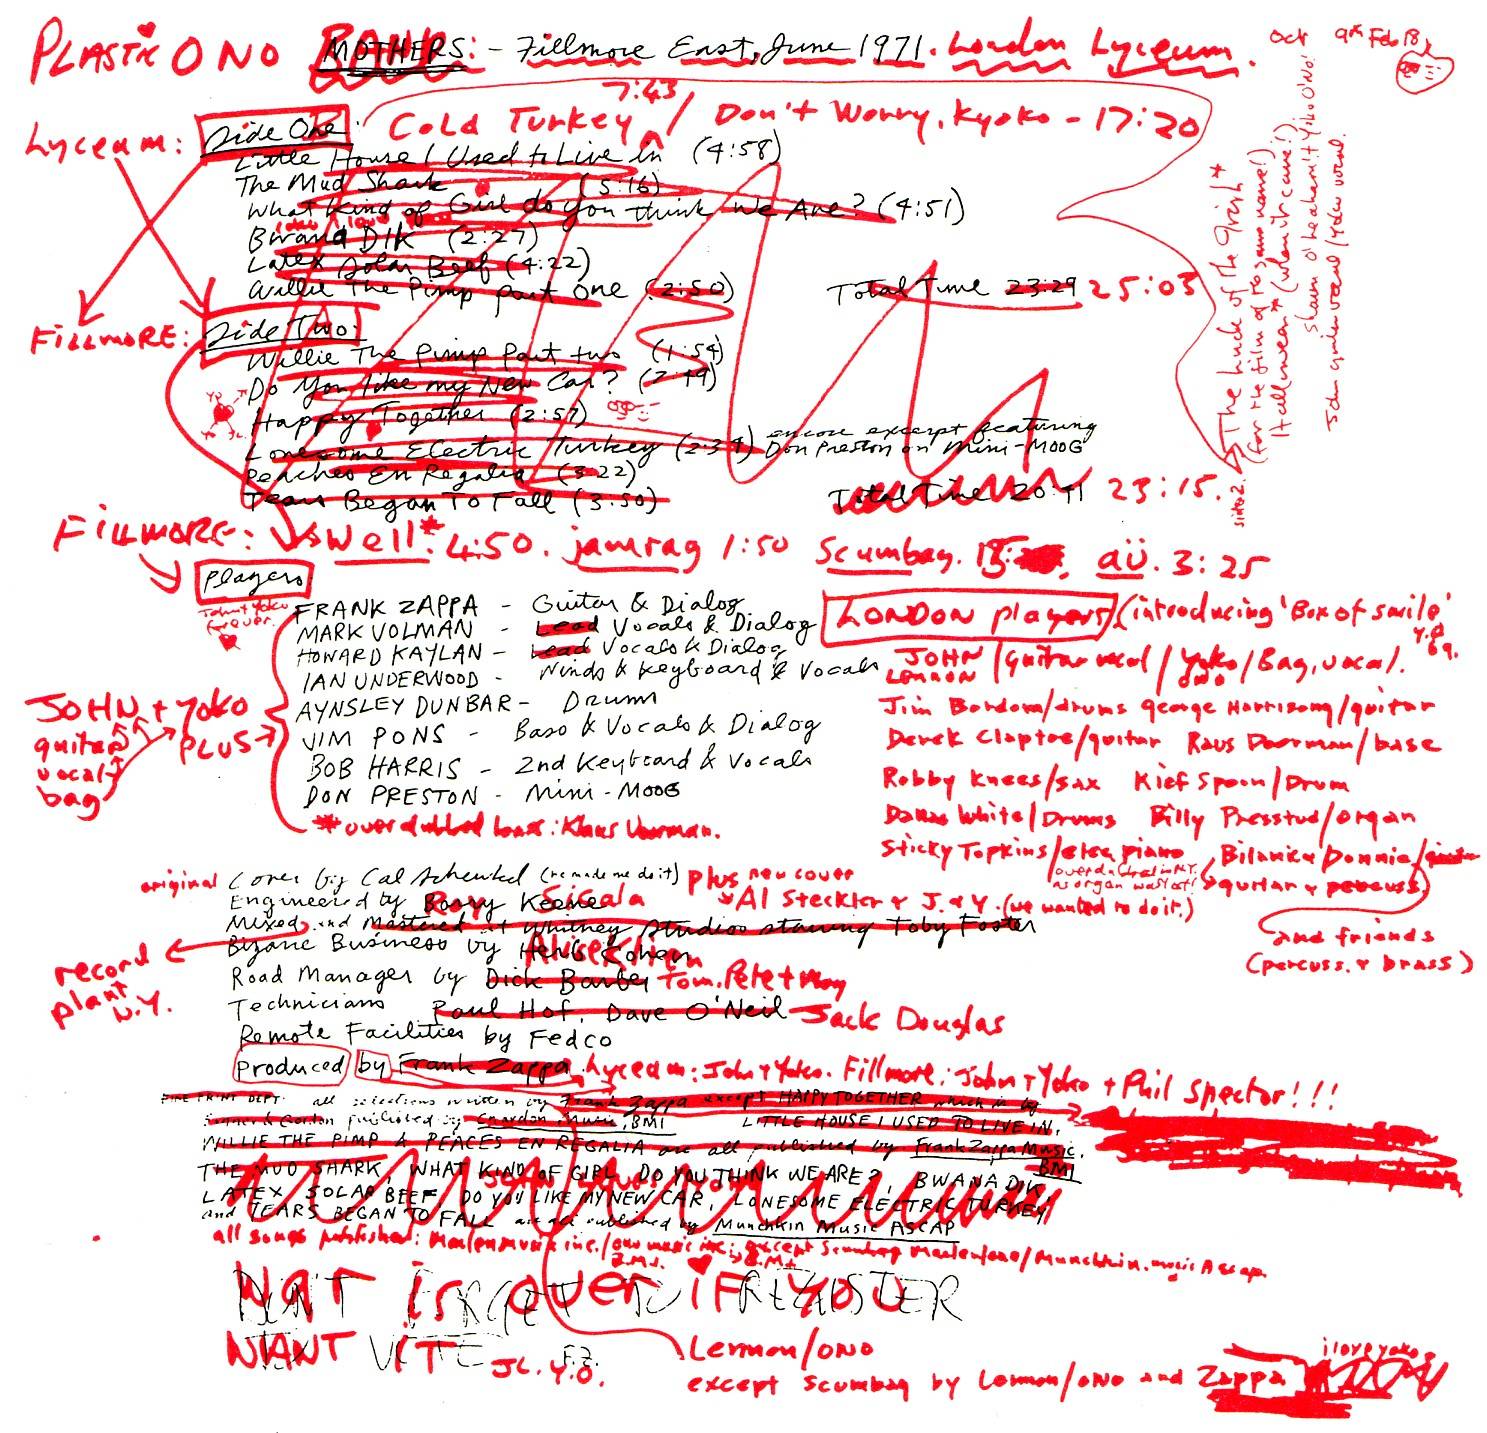 PLASTIC ONO BAND: MOTHERS: - Fillmore East, June 1971. London Lyceum.
Oct 9th Feb 18
Lyceum: Side One: Cold Turkey 7:43 / Don't Worry, Kyoko - 17:20
Little House I Used to Live in (4:58)
The Mud Shark (5:16)
What Kind of Girl do you think We Are? (4:51)
Bwana Dik (2:27)
Latex Solar Beef (4:22)
Willie The Pimp part One (2:50) Total Time 23:29 25:03
FILLMORE: Side Two:
Willie The Pimp Part two (1:54)
Do You like my New Car? (2:49)
Happy Together (2:57)
Lonesome Electric Turkey (2:34) encore excerpt featuring Don Preston on Mini-MOOG
Peaches En Regalia (3:22)
Tears Began To Fall (3:50) Total Time 20:41 23:15.
side 2.
FILLMORE: Well* 4:50. jamrag 1:50 Scumbag. 15: aü. 3:25
Players:
John + Yoko forever.
FRANK ZAPPA - Guitar & Dialog
MARK VOLMAN - Lead Vocals & Dialog
HOWARD KAYLAN - Lead Vocals & Dialog
IAN UNDERWOOD - Winds & Keyboard & Vocals
AYNSLEY DUNBAR - Drums
JIM PONS - Bass & Vocals & Dialog
BOB HARRIS - 2nd Keyboard & Vocals
DON PRESTON - Mini-MOOG
* overdubbed bass: Klaus Voorman.
JOHN + YOKO PLUS
guitar
vocal
bag
LONDON players (introducing 'Box of smile' Y.O. 69.
JOHN LENNON / guitar vocal / Yoko ONO / Bag, vocal.
Jim Bordom/drums George Harrisong/guitar
Derek Claptoe/guitar Raus Doorman/base
Robby Knees/sax Kief Spoon/Drum
Dallas White/Drums Billy Presstud/organ
Sticky Topkins/elec piano Bilanie + Donnie/guitar
overdubbed in N.Y. as organ was lost! guitar + percuss.
and friends
(percuss. + brass)
original Cover by Cal Schenkel (he made me do it) plus new cover Al Steckler + J. + Y. (we wanted to do it.)
Engineered by Barry Keene Roy Cicala
Mixed and Mastered at Whitney Studios starring Toby Foster
record plant N.Y.
Bizarre Business by Herb Cohen Allen Klein
Road Manager by Dick Barber Tom. Pete + May
Technicians Paul Hof, Dave O'Neil Jack Douglas
Remote Facilities by Fedco
produced by Frank Zappa Lyceum: John + Yoko. Fillmore: John + Yoko + Phil Spector!!!
FINE PRINT DEPT: all selections written by Frank Zappa except HAPPY TOGETHER which is by
Bonner & Gordon published by Chardon Music, BMI LITTLE HOUSE I USED TO LIVE IN,
WILLIE THE PIMP & PEACES EN REGALIA are all published by Frank Zappa Music, BMI
THE MUD SHARK, WHAT KIND OF GIRL DO YOU THINK WE ARE?, BWANA DIK,
LATEX SOLAR BEEF, DO YOU LIKE MY NEW CAR, LONESOME ELECTRIC TURKEY
and TEARS BEGAN TO FALL are all published by Munchkin Music ASCAP
all songs published: Maclen Music inc./ono music inc; except Scumbag Maclen/ono/Munchkin. music Ascap.
B.M.I. B.M.I.
DON'T FORGET TO REGISTER
TO VOTE F.Z.
WAR is over iF YOU
WANT iT JL. Y.O.
Lennon/ONO
except Scumbag by Lennon/ONO and Zappa
i love yoko
The Luck of the Irish*
(for the film of the same name!)
Halloween* (when it came!)
John guitar vocal / Yoko vocal.